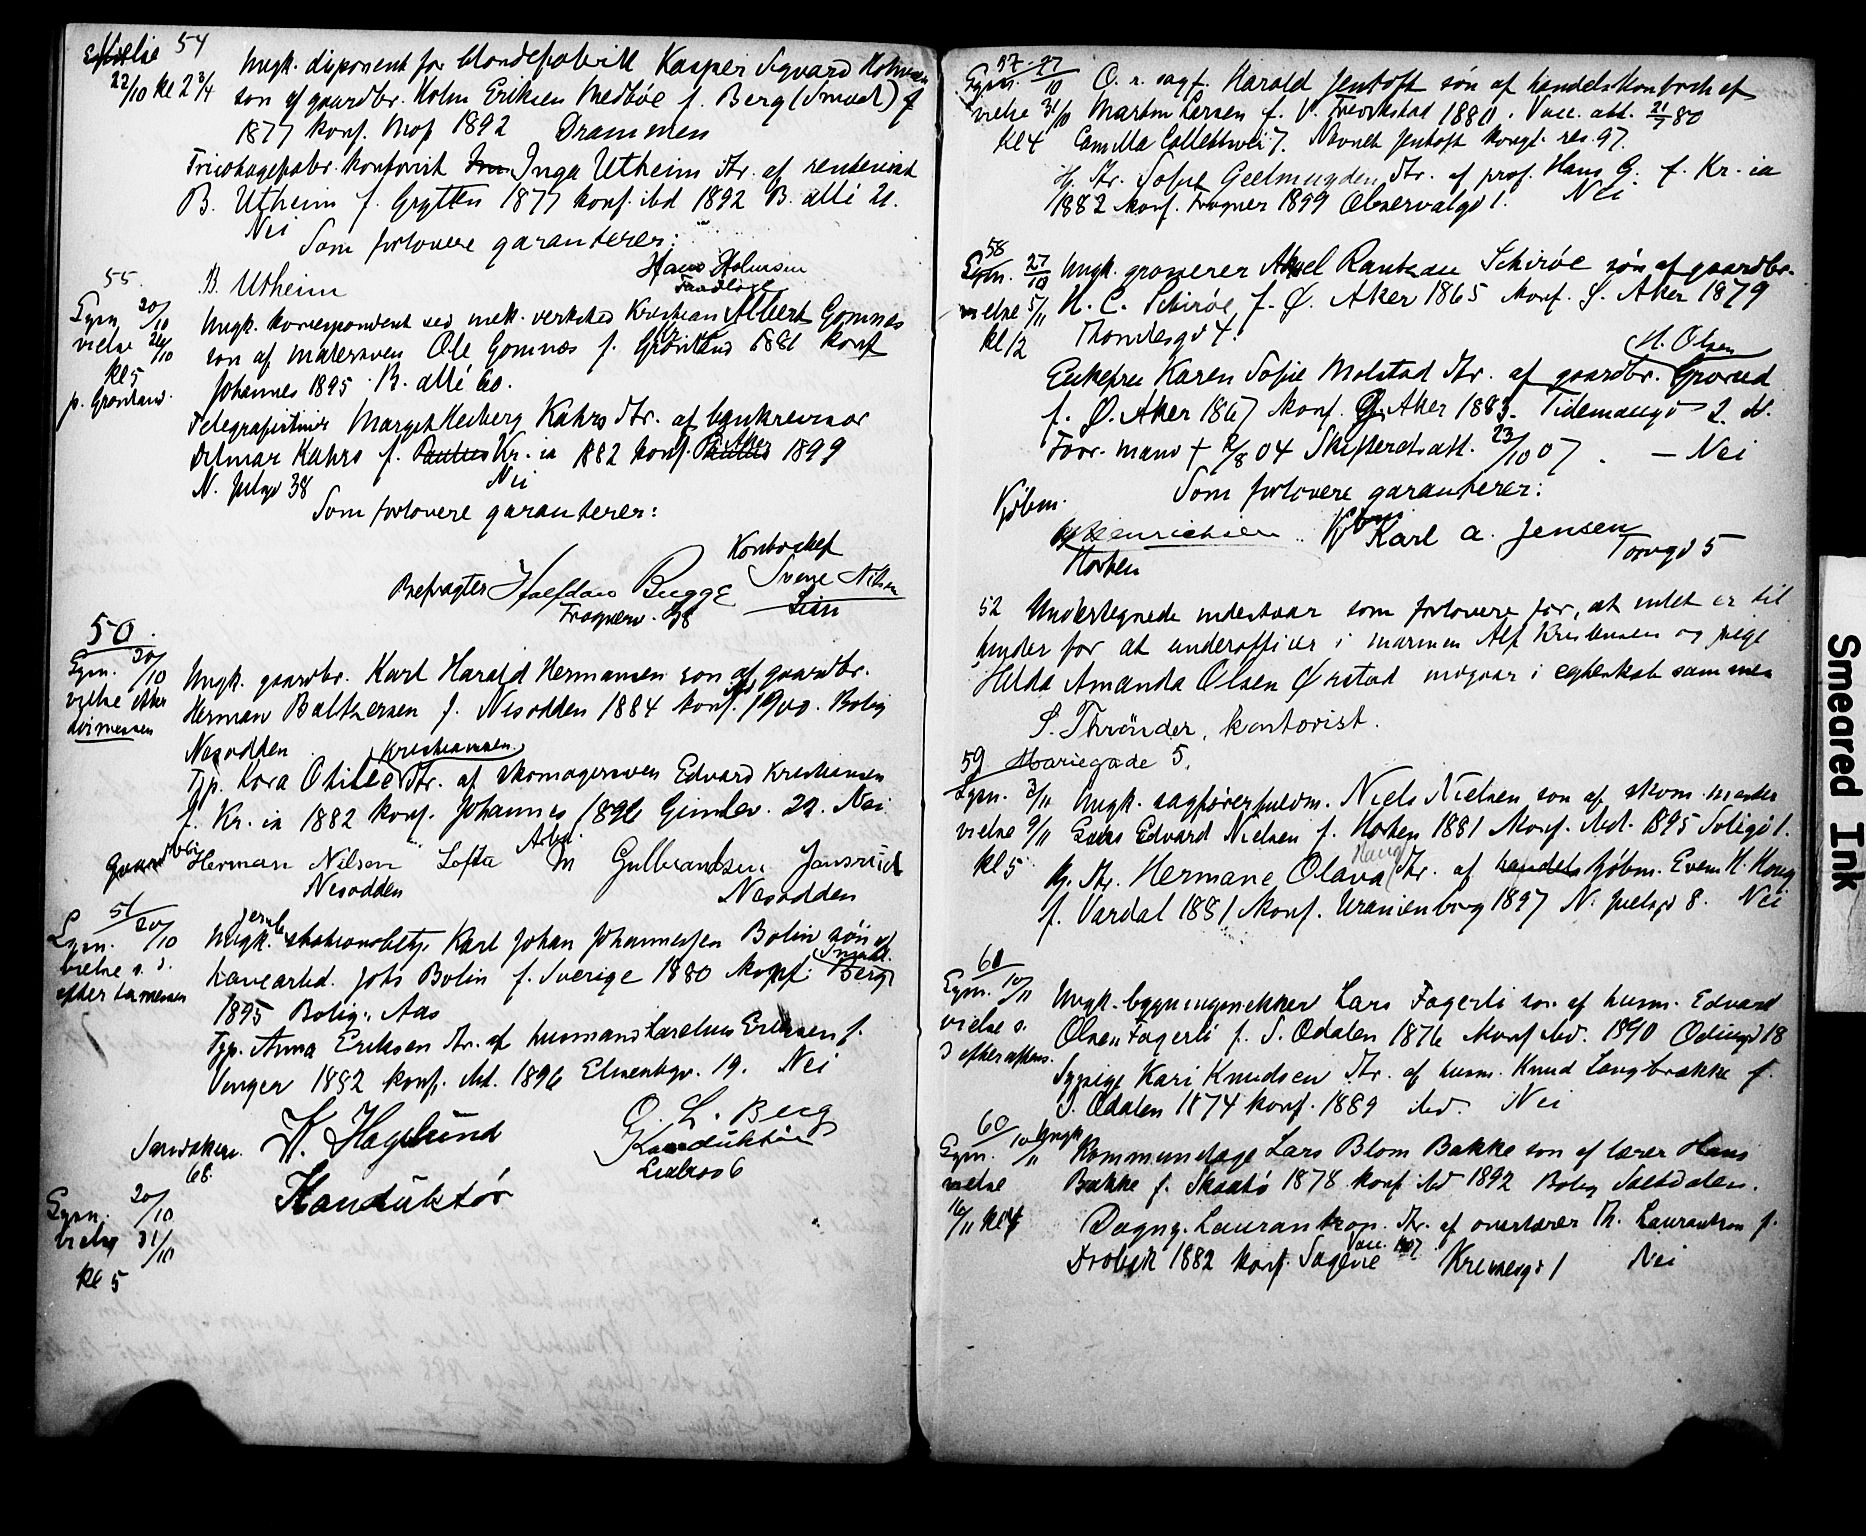 54
vielse
22/10 kl 2 3/4
Ungk. disponent for blondefabrikk Kasper Sigvard Holmsen
søn af gaardbr. Holm Eriksen Medbøe f. Berg (Smaal)
1877 konf. 1892 Drammen
Tricotagefabr. kontorist Inga Utheim dtr. af
B. Utheim f. Grytten 1877 konf. ibd 1892 B. allé 21.
Nei
Som forlovere garanterer:
B. Utheim
Hans Holmsen
Tandlæge
55.
Lysn. 20/10
vielse 26/10
kl 5
p. Grønland.
Ungk. korrespondent ved mek. verksted Kristian Albert Gomnæs
søn af malersven Ole Gomnæs f. Grønland 1881 konf
Johannes 1895. B. allé 60.
Telegrafistinde Margit Herberg Kahrs dtr. af bankrevisor
Ditmar Kahrs f. Paulus Kr. ia 1882 konf. Paulus V. Aker 1899
N. Juelsgd 38 Nei
Som forlovere garanterer:
Befragter Halfdan Bugge
Frognerv. 38
Kontorchef
Sverre Nilsen
50.
Lysn. 20/10
vielse efter
Ungk. gaardbr. Karl Harald Hermansen søn af gaardbr.
Herman Balthersen f. Nesodden 1884 konf. ibd 1900. Bolig
Nesodden
Kristiansen
Tjp. Kora Otilie dtr. af skomagersven Edvard Kristiansen
f. Kr. ia 1882 konf. Johannes 1896 Gimlev. 22. Nei
Herman Nilsen Tofta
Nesodden
Arb. M Gulbrandsen Jansrud
Nesodden
51
Lysn. 20/10
vielse s. d.
Ungk. jernb. stationsbetj. Karl Johan Johannessen Bolin søn af
havearbd. Johs Bolin f. Sverige 1880 konf. Berg (Smaal.
1895 Bolig: Aas
Tjp. Anna Eriksen dtr. af husmand Karelius Eriksen f.
Vinger 1882 konf. ibd. 1896 Elisenbgv. 19. Nei
68.
K. Haglund
Konduktør
O. L. Berg
Konduktør
Lysn. 20/10
vielse 31/10
kl 5
57. 27/10
Lysn.
vielse 31/10
kl 4
O. r. sagf. Harald Jentoft søn af handelskontorchef
Martin Larsen f. V. Fredrikstad 1880. Vacc. att. 21/7 80
Camilla Collettsvei 7. Navnet Jentoft kongl. res. 97.
Hj. dtr. Sofie Geelmuyden, dtr. af prof. Hans G. f. Kr. ia
1882 konf. Frogner 1899 Observatgd 1. Nei
58
Lysn. 27/10
vielse 5/11
kl 12
Ungk. grosserer Aksel Rantzau Schirøe søn af gaardbr.
H. C. Schirøe f. Ø. Aker 1865 konf. Ø. Aker 1879
Thomlesgd 4.
H. Olsen
Enkefru Karen Sofie Molstad dtr. af gaardbr. Grorud
f. Ø. Aker 1867 konf. Ø. Aker 1883. Tidemansgd 2.
Forr. mand † 04 Skifteretsatt. 23/10 07. — Nei
Som forlovere garanterer:
Kjøbm.
Henrichsen
Horten
Kjøbm Karl A. Jensen
Torvgd 5
52 Undertegnede indestaar som forlovere for, at intet er til
hinder for at underofficer i marinen Alf Kristensen og pige
Hilda Amanda Olsen Ørstad indgaar i egteskab sammen
S. Thrönder, kontorist.
Mariegade 5.
59
Lysn. 3/11
vielse 9/11
kl 5
Ungk. sagførerfuldm. Niels Nielsen søn af skom. mester
Edvard Nielsen f. Horten 1881 konf. ibd. 1895 Soligd 1.
Hj. dtr. Hermane Olava Haug dtr. af handels kjøbm. Even H. Haug
f. Vardal 1881 konf. Uranienborg 1897 N. Juelsgd 8. Nei
61
Lysn. 10/11
vielse s.
d efter aftens.
Ungk. bygningssnekker Lars Fagerli søn af husm. Edvard
Olsen Fagerli f. S. Odalen 1876 konf. ibd. 1890 Odinsgd 18
Sypige Kari Knudsen dtr. af husm. Knud Langbrække f.
S. Odalen 1874 konf. 1889 ibd. Nei
60
Lysn. 10/11
vielse
16/11 kl 4
Ungk
Kommunelæge Lars Blom Bakke søn af lærer Hans
Bakke f. Skaatø 1878 konf ibd 1892 Bolig Saltdalen.
Dagny Laurantzon dtr. af overlærer Th. Laurantzon f.
Drøbak 1882 konf. Sagene Vacc. 1897 Nei
Smeared Ink